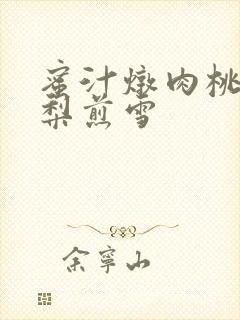 蜜汁燉肉桃
梨煎雪
余寧山